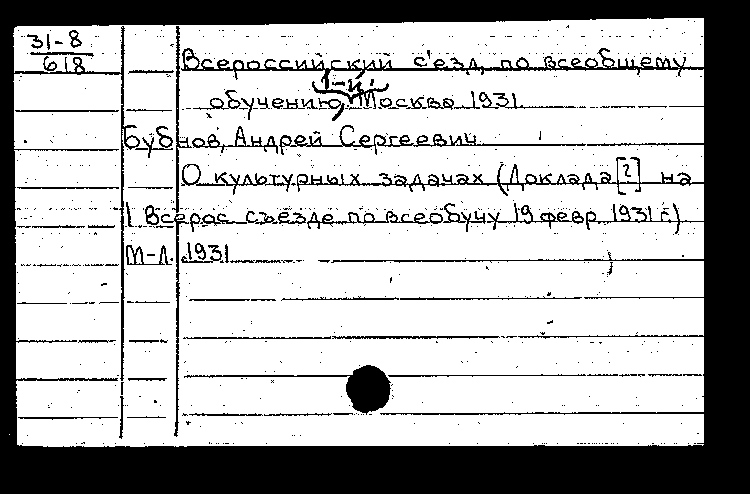 31-8
618
Всероссийский с'езд, по всеобщему
1-й.
обучению, Москва 1931.
Бубнов, Андрей Сергеевич
О культурных задачах (Доклада [?] на
1 Всерос. съезде по всеобучу 19 февр. 1931 г.)
М-Л. 1931